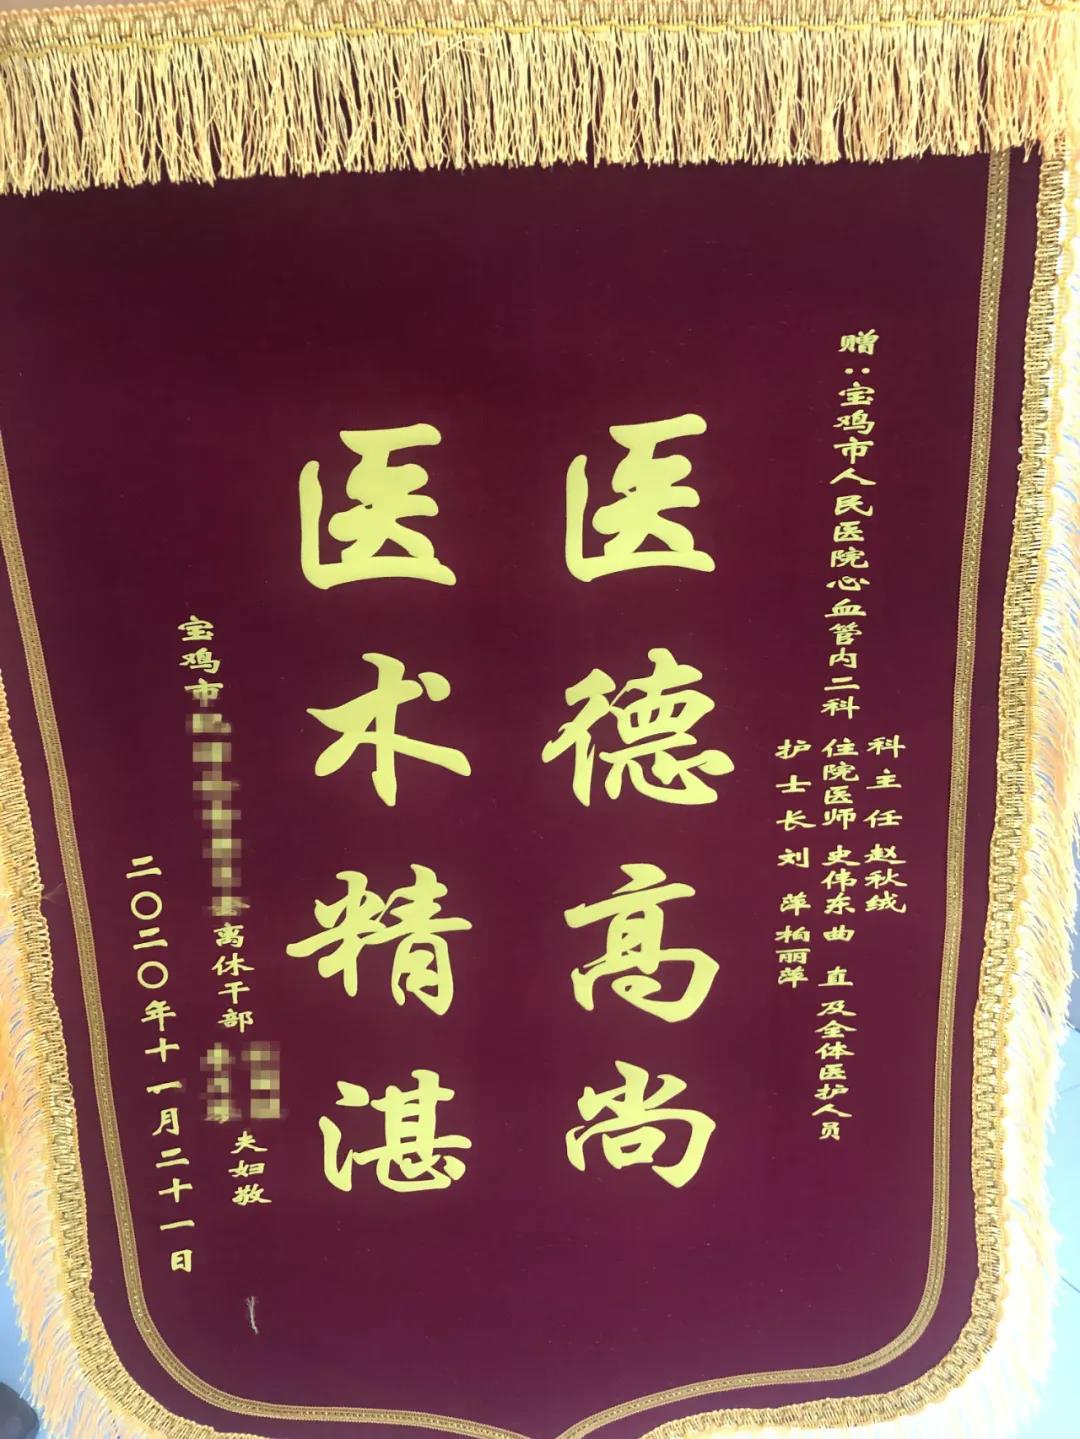 赠:宝鸡市人民医院心血管内二科
科主任 赵秋绒
住院医师 史伟东 曲直 及全体医护人员
护士长 刘萍 柏丽萍
医德高尚
医术精湛
宝鸡市
离休干部
夫妇敬
二〇二〇年十一月二十一日